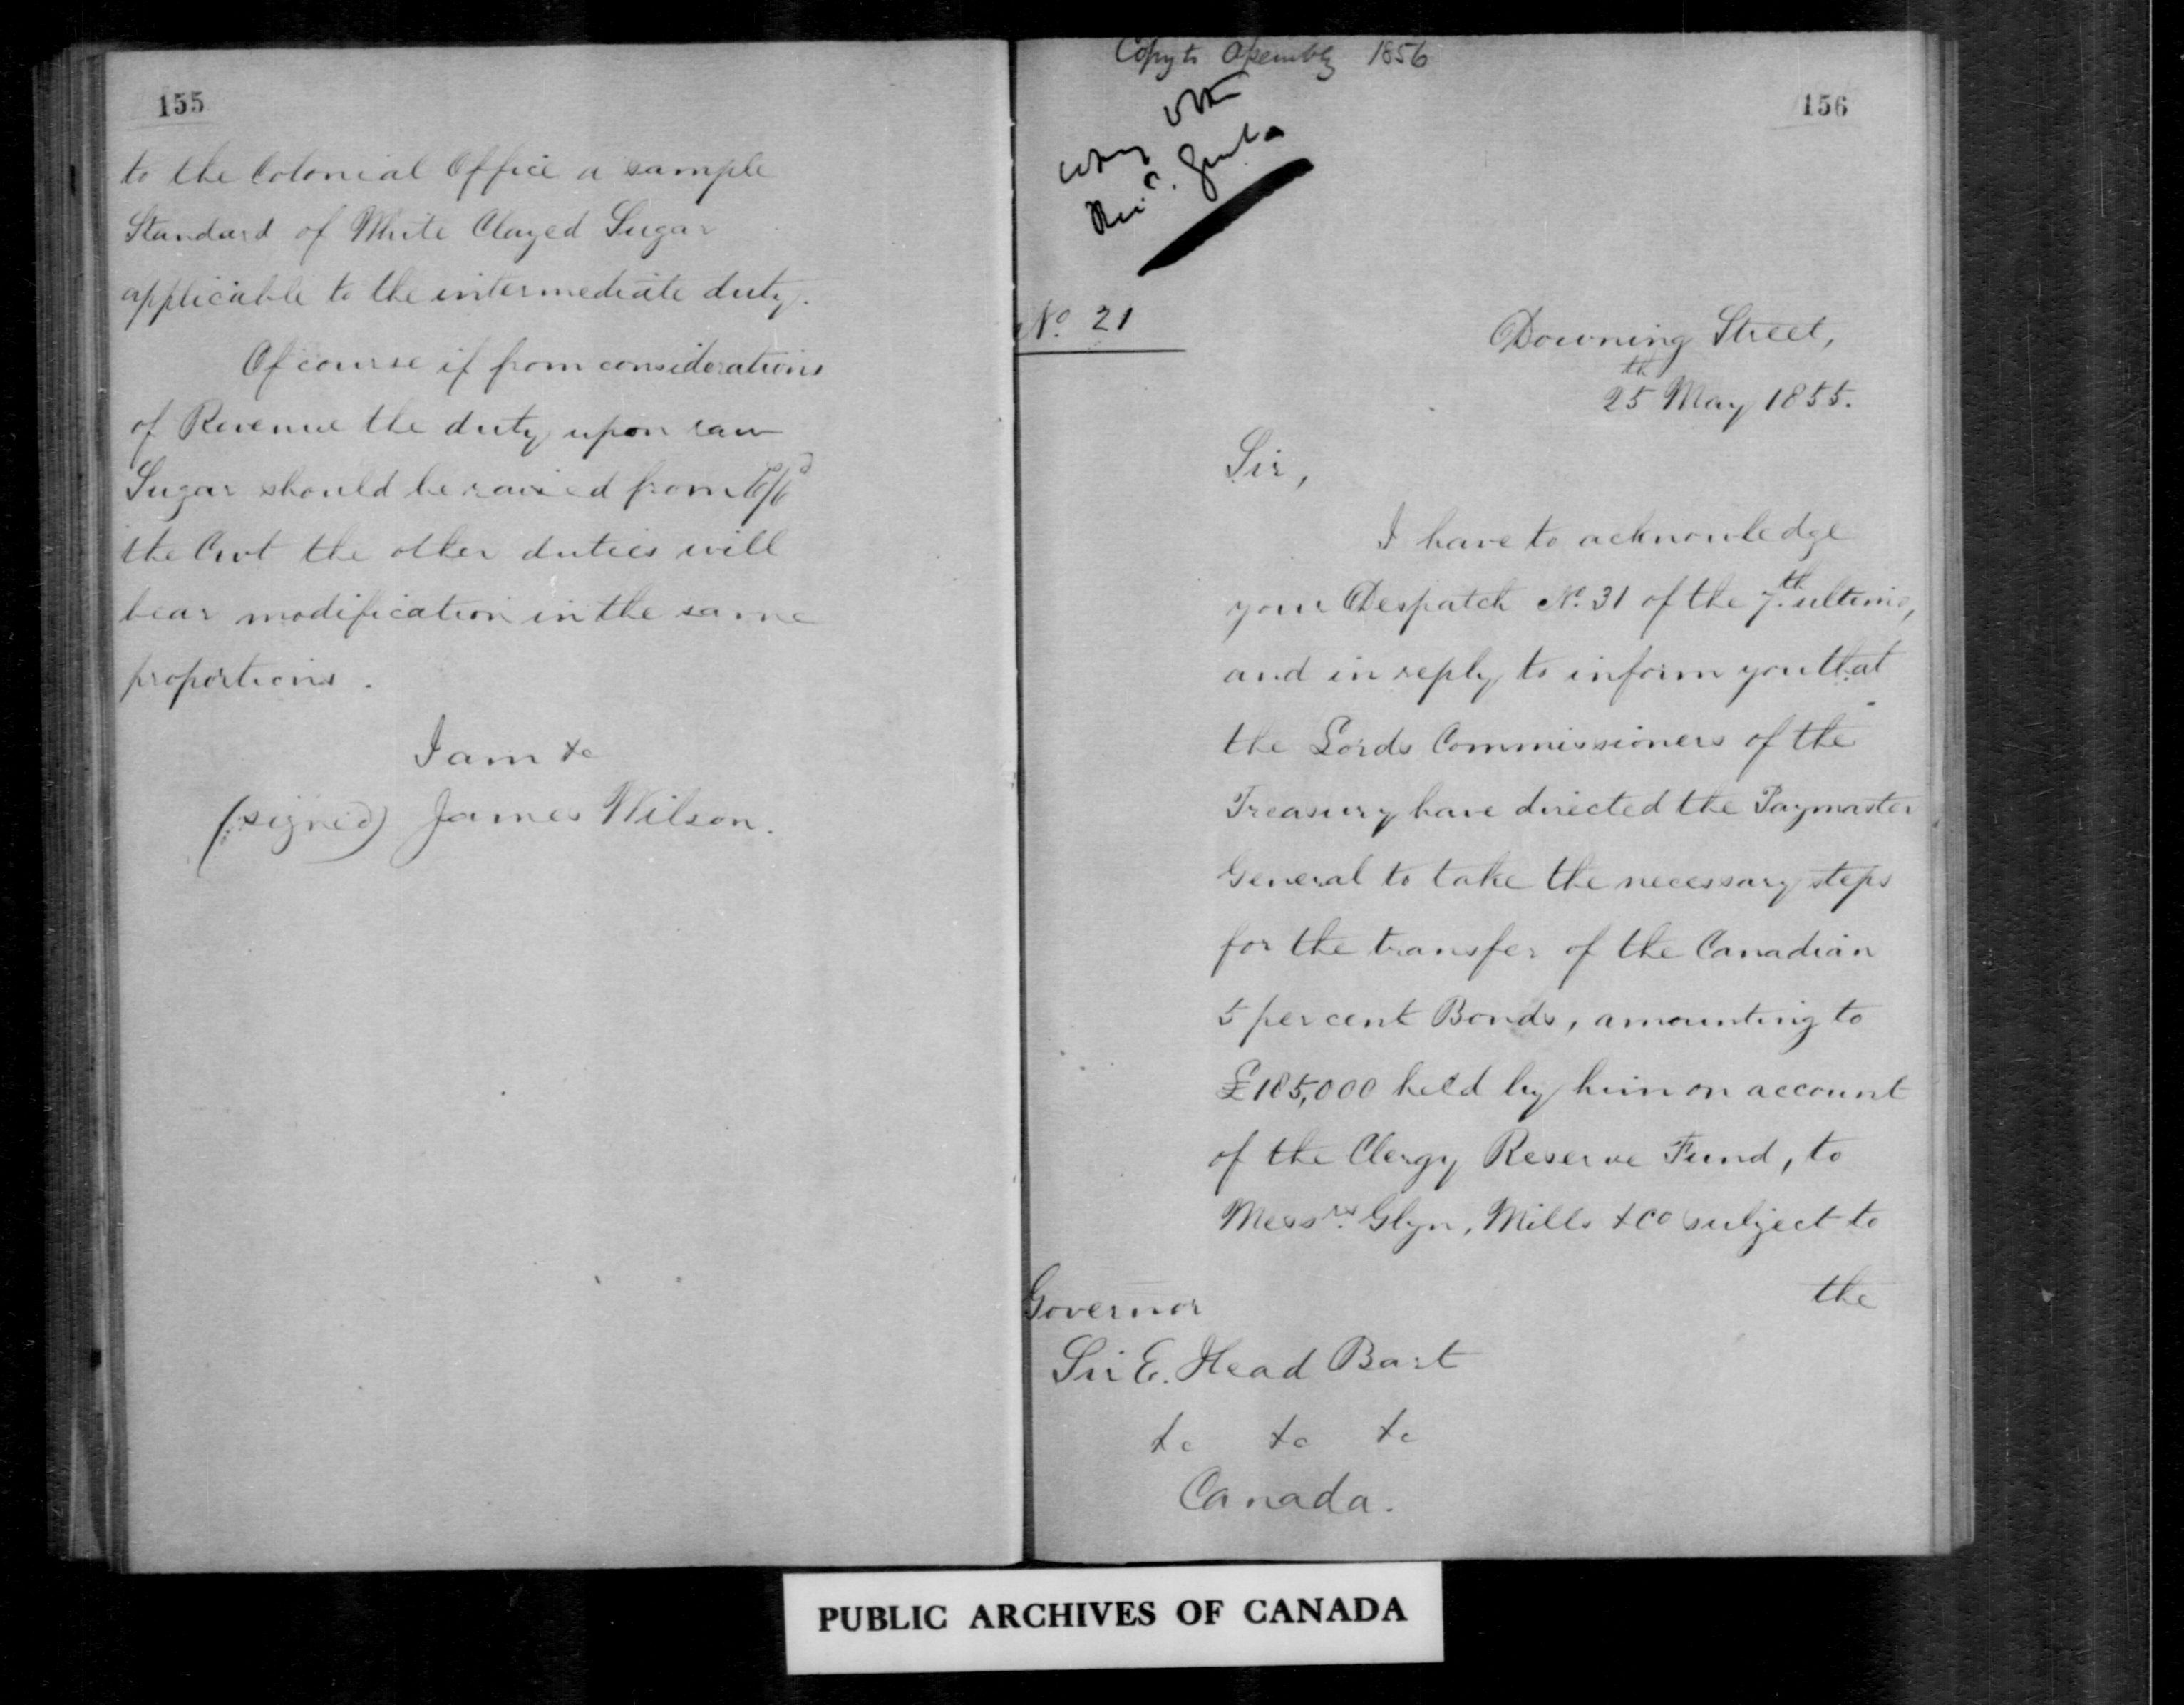 155
to the Colonial Office a sample
Standard of White Clayed Sugar
applicable to the intermediate duty.
Of course if from considerations
of Revenue the duty upon raw
Sugar should be raised from 6/6d
the Cwt the other duties will
bear modification in the same
proportions.
I am &c
(signed) James Wilson.
Copy to Assembly 1856
156
No. 21
Downing Street,
25th May 1855.
Sir,
I have to acknowledge
your Despatch No. 31 of the 7th ultimo,
and in reply to inform you that
the Lords Commissioners of the
Treasury have directed the Paymaster
General to take the necessary steps
for the transfer of the Canadian
5 per cent Bonds, amounting to
£185,000 held by him on account
of the Clergy Reserve Fund, to
Messrs. Glyn, Mills & Co subject to
the
Governor
Sir E. Head Bart
&c &c &c
Canada.
PUBLIC ARCHIVES OF CANADA